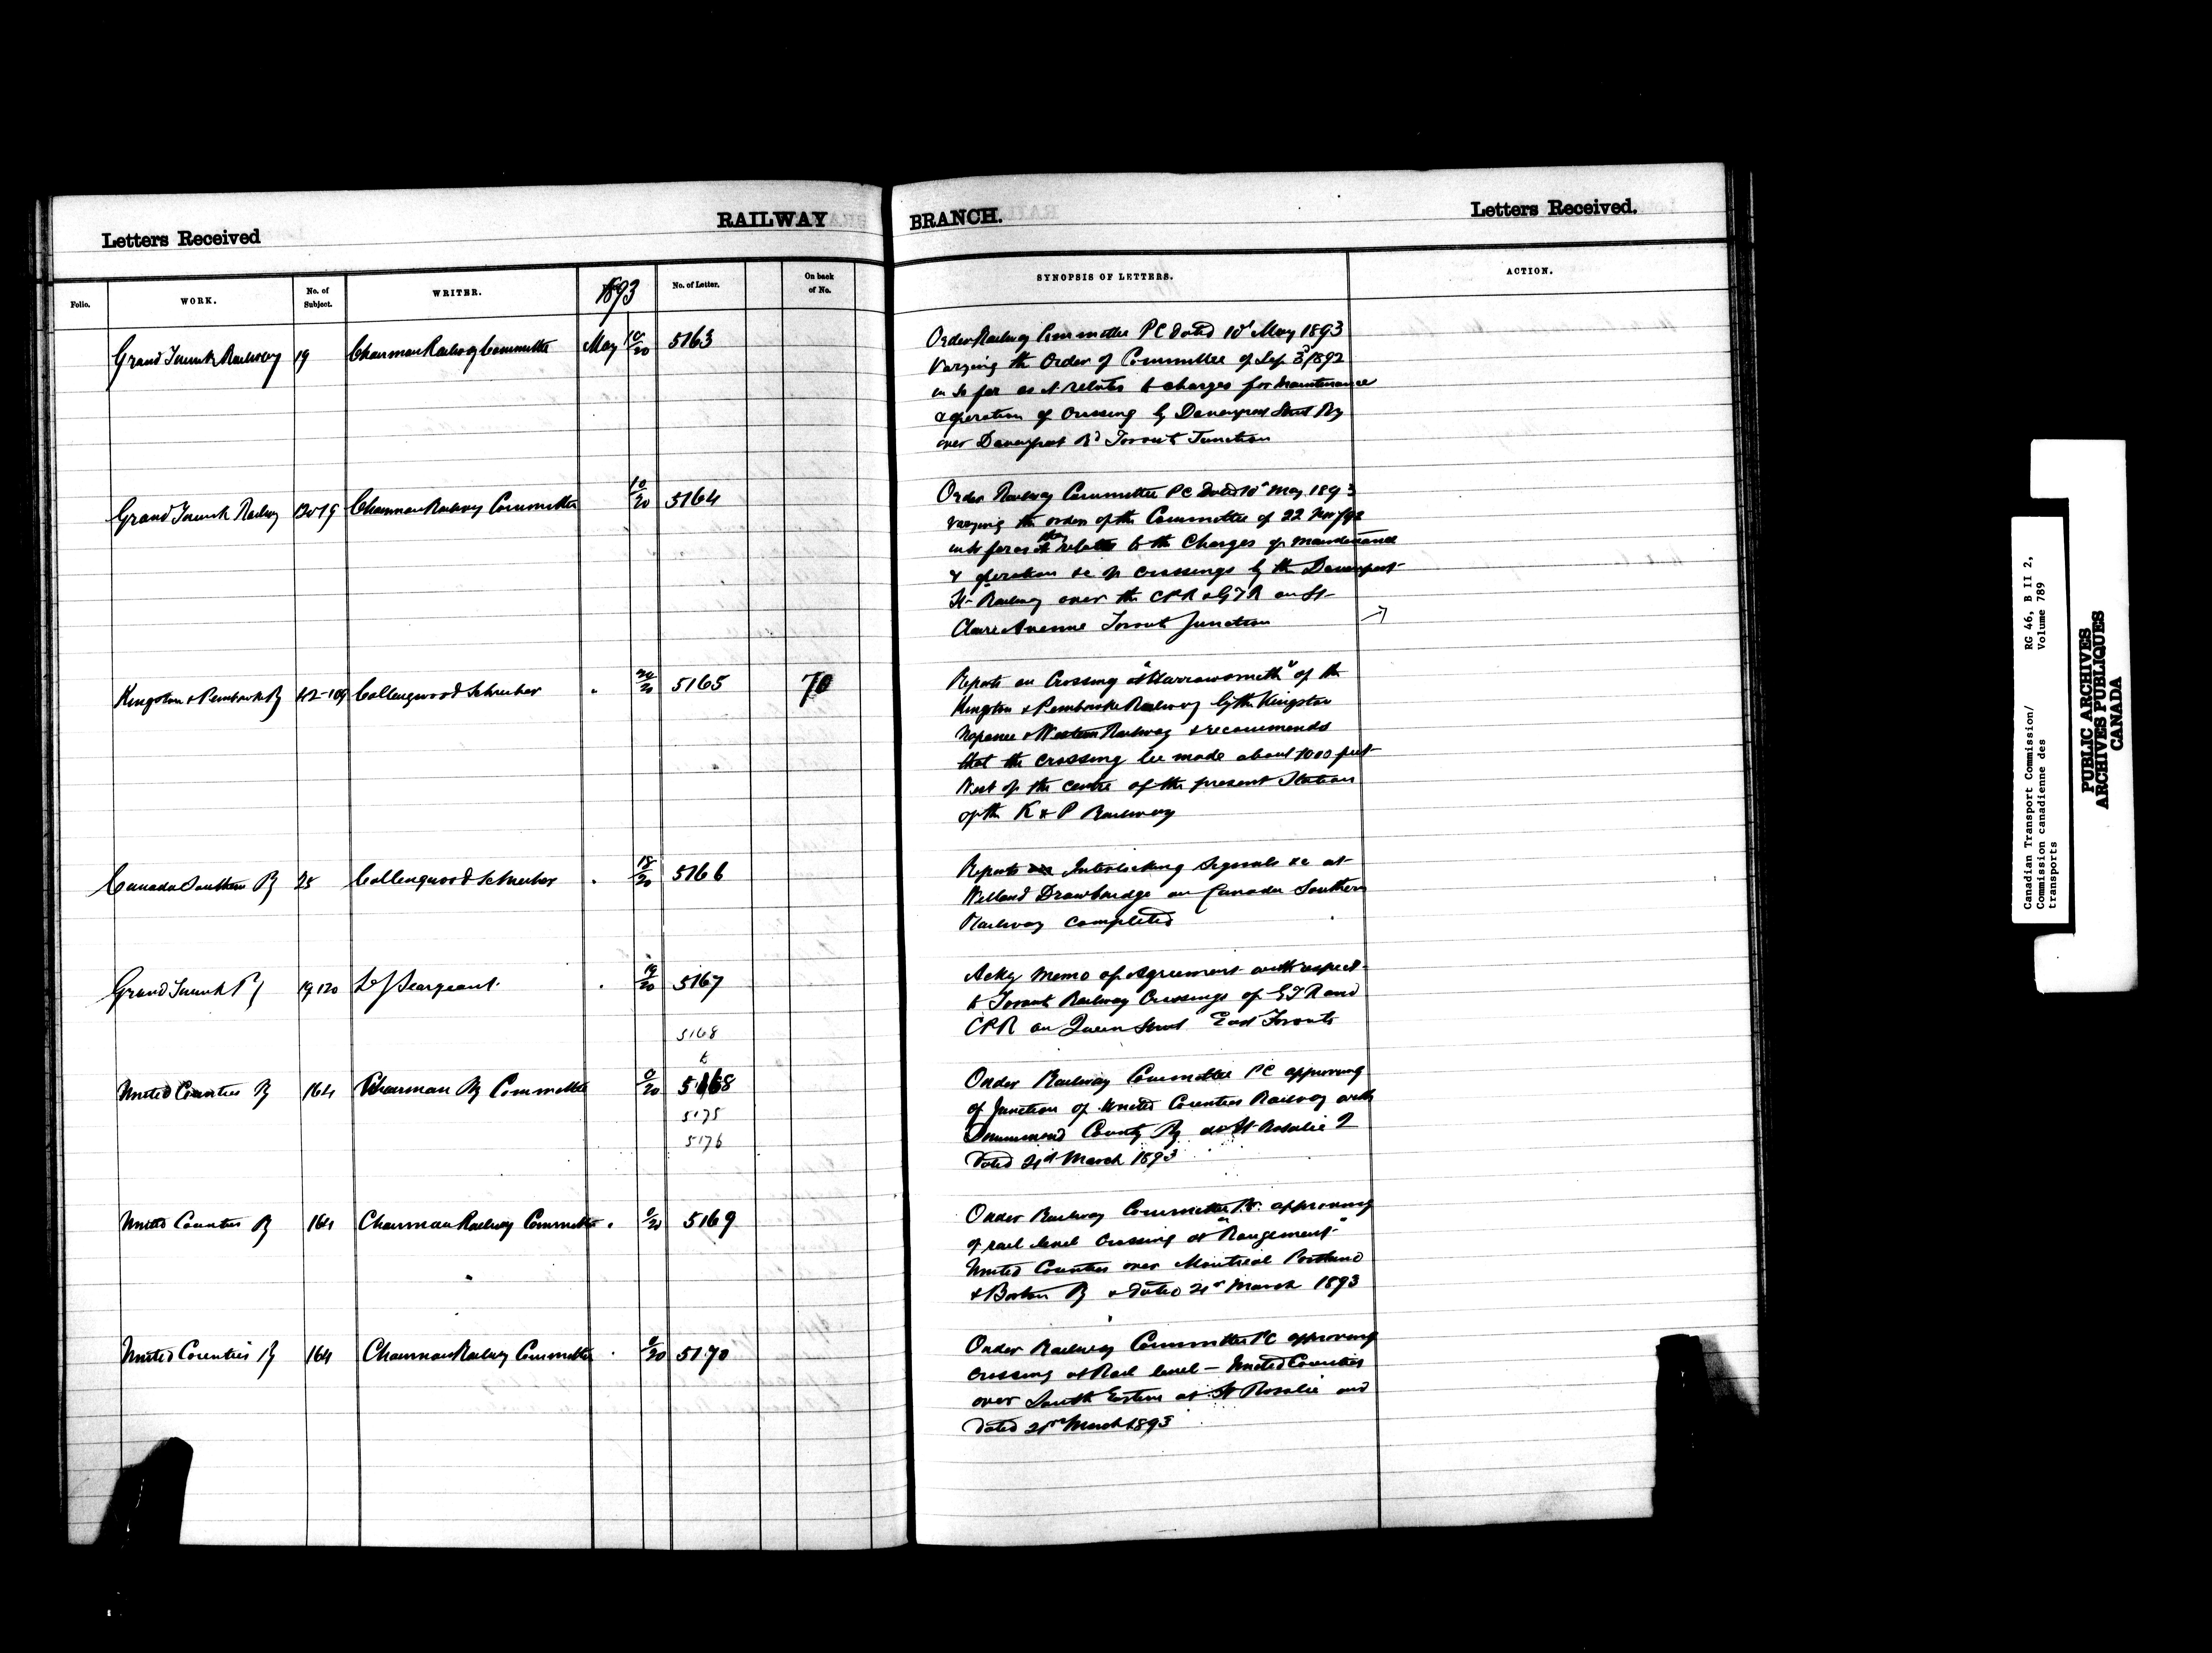 Letters Received
RAILWAY BRANCH.
Letters Received.
Folio.
WORK.
No. of Subject.
WRITER.
1893
No. of Letter.
On back of No.
SYNOPSIS OF LETTERS.
ACTION.
Grand Trunk Railway 19 Chairman Railway Committee May 10/20 5163
Order Railway Committee PC dated 10th May 1893
Varying the Order of Committee of Sep 3d/1892
in so far as it relates to charges for maintenance
& operation of crossing by Davenport Street Ry
over Davenport Rd Toronto Junction
Grand Trunk Railway 120-19 Chairman Railway Committee 10/20 5164
Order Railway Committee PC dated 10th May 1893
varying the orders of the Committee of 22 Nov/92
in so far as they relate to the Charges of maintenance
& operation &c of crossings by the Davenport
St Railway over the CPR & GTR on St
Clair Avenue Toronto Junction
Kingston & Pembroke Ry 42-109 Collingwood Schreiber " 20 5165 70
Reports on Crossing at "Harrowsmith" of the
Kingston & Pembroke Railway by the Kingston
Napanee & Western Railway & recommends
that the crossing be made about 1000 feet
West of the centre of the present Station
of the K & P Railway
Canada Southern Ry 25 Collingwood Schreiber " 18/20 5166
Reports Interlocking Signals &c at
Welland Drawbridge on Canada Southern
Railway completed
Grand Trunk Ry 19 120 L J Seargeant " 19/20 5167
Ackg Memo of Agreement with respect
to Toronto Railway Crossings of GTR and
CPR on Queen Street East Toronto
5168
United Counties Ry 164 Chairman Ry Committee 0/20 5168
5175
5176
Order Railway Committee PC approving
of Junction of United Counties Railway with
Drummond County Ry at St Rosalie
Dated 21st March 1893
United Counties Ry 164 Chairman Railway Committee " 0/20 5169
Order Railway Committee PC approving
of rail level crossing at "Rougemont"
United Counties over Montreal Portland
& Boston Ry & dated 21st March 1893
United Counties Ry 164 Chairman Railway Committee " 0/20 5170
Order Railway Committee PC approving
crossing at Rail level – United Counties
over South Eastern at St Rosalie and
dated 21st March 1893
Canadian Transport Commission/
Commission canadienne des
transports
RG 46, B II 2,
Volume 789
PUBLIC ARCHIVES
ARCHIVES PUBLIQUES
CANADA